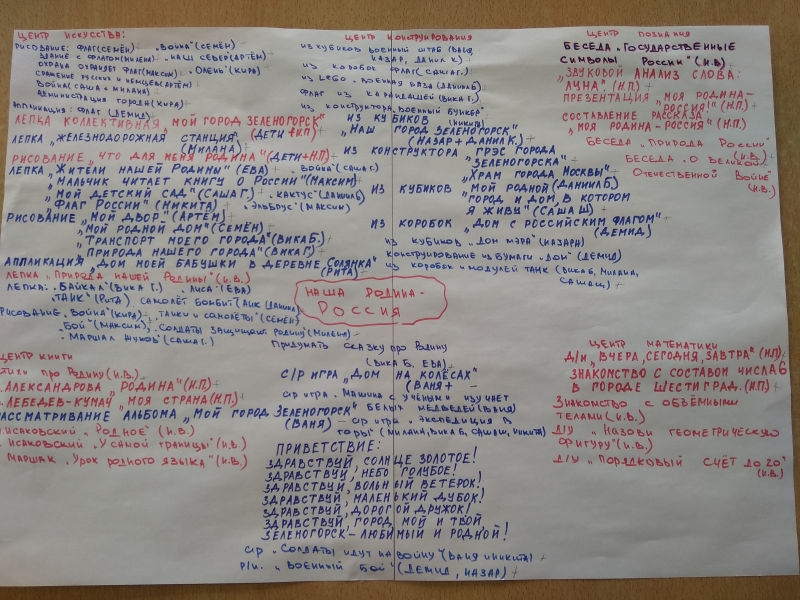 ЦЕНТР ИСКУССТВА:
РИСОВАНИЕ: ФЛАГ (СЕМЁН) „ВОЙНА" (СЕМЁН)
ЗДАНИЕ С ФЛАГОМ (МИЛЕНА) „НАШ СЕВЕР (АРТЁМ)
ОХРАНА ОХРАНЯЕТ ФЛАГ (МАКСИМ) „ОЛЕНЬ" (КИРА)
СРАЖЕНИЕ РУССКИХ И НЕМЦЕВ (АРТЁМ)
ВОЙНА (САША И МИЛАНА)
АДМИНИСТРАЦИЯ ГОРОДА (КИРА)
АППЛИКАЦИЯ: ФЛАГ (ДЕМИД)
ЛЕПКА КОЛЛЕКТИВНАЯ „МОЙ ГОРОД ЗЕЛЕНОГОРСК"
ЛЕПКА „ЖЕЛЕЗНОДОРОЖНАЯ СТАНЦИЯ" (ДЕТИ + Н.П)
(МИЛАНА)
РИСОВАНИЕ „ЧТО ДЛЯ МЕНЯ РОДИНА" (ДЕТИ + Н.П)
ЛЕПКА „ЖИТЕЛИ НАШЕЙ РОДИНЫ" (ЕВА) „ВОЙНА" (САША Г.)
„МАЛЬЧИК ЧИТАЕТ КНИГУ О РОССИИ" (МАКСИМ)
„МОЙ ДЕТСКИЙ САД" (САША Г.) „КАКТУС" (ДАНИЛ Б)
„ФЛАГ РОССИИ" (НИКИТА) „ЭЛЬБРУС" (МАКСИМ)
РИСОВАНИЕ „МОЙ ДВОР" (АРТЁМ)
„МОЙ РОДНОЙ ДОМ" (СЕМЁН)
„ТРАНСПОРТ МОЕГО ГОРОДА" (ВИКА Б.)
„ПРИРОДА НАШЕГО ГОРОДА" (ВИКА Г.)
АППЛИКАЦИЯ „ДОМ МОЕЙ БАБУШКИ В ДЕРЕВНЕ СОЛЯНКА"
(РИТА)
ЛЕПКА „ПРИРОДА НАШЕЙ РОДИНЫ" (И.В.)
ЛЕПКА: „БАЙКАЛ" (ВИКА Г.) „ЛИСА" (ЕВА)
„ТАНК" (РИТА) САМОЛЁТ БОМБИТ
РИСОВАНИЕ „ВОЙНА" (КИРА) „ТАНКИ И САМОЛЁТЫ" (СЕМЁН)
„БОЙ" (МАКСИМ) „СОЛДАТЫ ЗАЩИЩАЮТ РОДИНУ" (МИЛЕНА)
„МАРШАЛ ЖУКОВ" (САША Г.)
ЦЕНТР КОНСТРУИРОВАНИЯ
ИЗ КУБИКОВ ВОЕННЫЙ ШТАБ (ВАНЯ,
НАЗАР, ДАНИЛ К)
ИЗ КОРОБОК ФЛАГ (САША Г.)
ИЗ LEGO „ВОЕННАЯ БАЗА (ДАНИЛ Б)
ФЛАГ ИЗ КАРАНДАШЕЙ (ВИКА Г.)
ИЗ КОНСТРУКТОРА „ВОЕННЫЙ БУНКЕР"
(НИКИТА)
ИЗ КУБИКОВ
„НАШ ГОРОД ЗЕЛЕНОГОРСК"
(НАЗАР + ДАНИЛ К.)
ИЗ КОНСТРУКТОРА „ГРЭС ГОРОДА
ЗЕЛЕНОГОРСКА"
„ХРАМ ГОРОДА МОСКВЫ"
ИЗ КУБИКОВ „МОЙ РОДНОЙ (ДАНИИЛ Б.)
„ГОРОД И ДОМ, В КОТОРОМ
Я ЖИВУ" (САША Ш)
ИЗ КОРОБОК „ДОМ С РОССИЙСКИМ ФЛАГОМ"
(ДЕМИД)
ИЗ КУБИКОВ „ДОМ МЭРА" (НАЗАРИ)
КОНСТРУИРОВАНИЕ ИЗ БУМАГИ „ДОМ" (ДЕМИД)
ИЗ КОРОБОК И МОДУЛЕЙ ТАНК (ВИКА Б, МИЛАНА,
САША Ш)
ЦЕНТР ПОЗНАНИЯ
БЕСЕДА „ГОСУДАРСТВЕННЫЕ
СИМВОЛЫ РОССИИ" (И.В)
„ЗВУКОВОЙ АНАЛИЗ СЛОВА:
ЛУНА" (Н.П)
ПРЕЗЕНТАЦИЯ „МОЯ РОДИНА-
РОССИЯ!" (Н.П)
СОСТАВЛЕНИЕ РАССКАЗА
„МОЯ РОДИНА - РОССИЯ" (Н.П)
БЕСЕДА „ПРИРОДА РОССИИ"
(И.В.)
БЕСЕДА „О ВЕЛИКОЙ
ОТЕЧЕСТВЕННОЙ ВОЙНЕ"
(И.В.)
НАША РОДИНА-
РОССИЯ
ПРИДУМАТЬ СКАЗКУ ПРО РОДИНУ
(ВИКА Б, ЕВА)
С/Р ИГРА „ДОМ НА КОЛЁСАХ"
(ВАНЯ +
С/Р ИГРА „МАШИНА С УЧЁНЫМИ ИЗУЧАЕТ
БЕЛЫХ МЕДВЕДЕЙ (ВАНЯ)
С/Р ИГРА „ЭКСПЕДИЦИЯ В
ГОРЫ" (МИЛАНА, ВИКА Б, САША Ш, НИКИТА)
ЦЕНТР КНИГИ
СТИХИ ПРО РОДИНУ (И.В.)
АЛЕКСАНДРОВА „РОДИНА" (Н.П)
ЛЕБЕДЕВ-КУМАЧ „МОЯ СТРАНА (Н.П.)
РАССМАТРИВАНИЕ АЛЬБОМА „МОЙ ГОРОД ЗЕЛЕНОГОРСК"
(ВАНЯ)
ИСАКОВСКИЙ „РОДНОЕ" (И.В.)
ИСАКОВСКИЙ „У САМОЙ ГРАНИЦЫ" (И.В.)
МАРШАК „УРОК РОДНОГО ЯЗЫКА" (И.В.)
ПРИВЕТСТВИЕ:
ЗДРАВСТВУЙ, СОЛНЦЕ ЗОЛОТОЕ!
ЗДРАВСТВУЙ, НЕБО ГОЛУБОЕ!
ЗДРАВСТВУЙ, ВОЛЬНЫЙ ВЕТЕРОК!
ЗДРАВСТВУЙ, МАЛЕНЬКИЙ ДУБОК!
ЗДРАВСТВУЙ, ДОРОГОЙ ДРУЖОК!
ЗДРАВСТВУЙ, ГОРОД МОЙ И ТВОЙ
ЗЕЛЕНОГОРСК - ЛЮБИМЫЙ И РОДНОЙ!
С/Р „СОЛДАТЫ ИДУТ НА ВОЙНУ" (ВАНЯ И НИКИТА)
Р/И. „ВОЕННЫЙ БОЙ" (ДЕМИД, НАЗАР)
ЦЕНТР МАТЕМАТИКИ
Д/И „ВЧЕРА, СЕГОДНЯ, ЗАВТРА" (Н.П)
ЗНАКОМСТВО С СОСТАВОМ ЧИСЛА 6
В ГОРОДЕ ШЕСТИГРАД. (Н.П)
ЗНАКОМСТВО С ОБЪЁМНЫМИ
ТЕЛАМИ (И.В.)
Д/И „НАЗОВИ ГЕОМЕТРИЧЕСКУЮ
ФИГУРУ" (И.В.)
Д/И „ПОРЯДКОВЫЙ СЧЁТ ДО 20"
(И.В.)